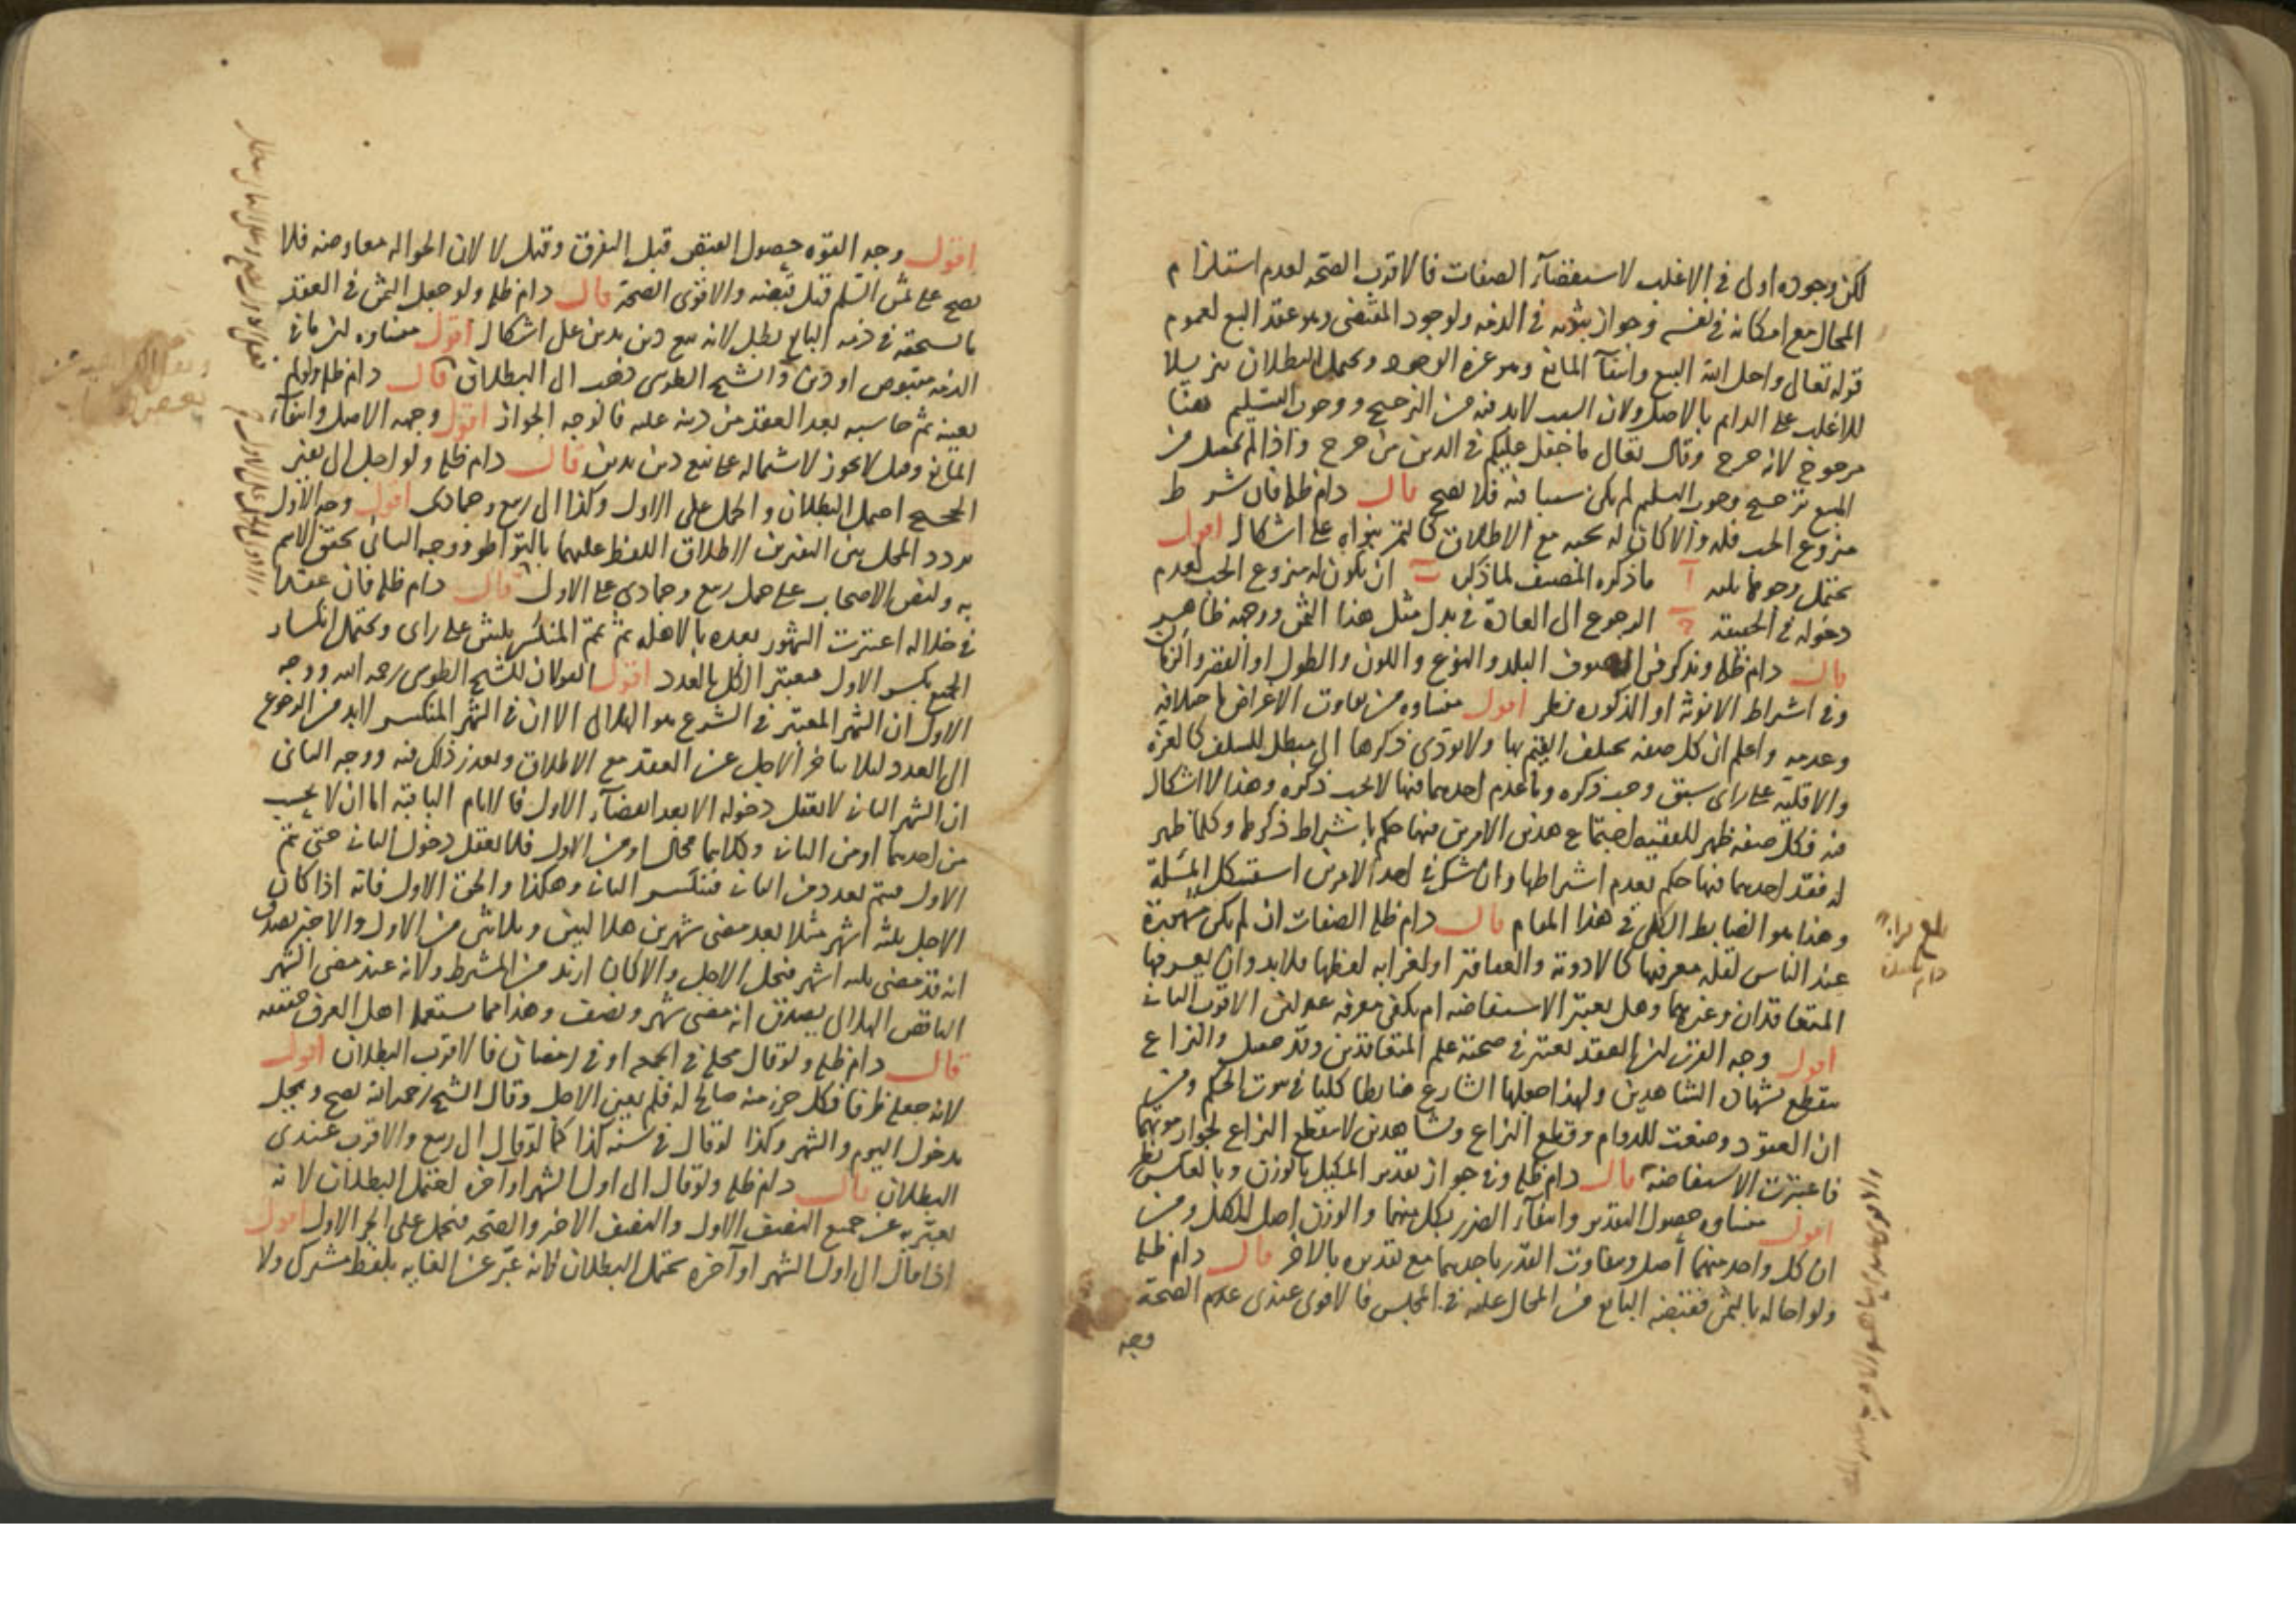 لكن وجوده اولى فى الاغلب لاستقضآء الصفات فالاقرب الصحه لعدم استلزام
المحال مع امكانه فى نفسه وجواز ثبوته فى الذمه ولوجود المقتضى وهو عقد البيع لعموم
قوله تعالى واحل الله البيع وانتفآ المانع وهو عزة الوجود ويحتمل البطلان تنزيلا
للاغلب على الدايم بالاصل ولان السبب لابد فيه من الترجيح ووجوب التسليم هنا
مرجوح لانه حرج وقال تعالى ما جعل عليكم فى الدين من حرج واذا لم يحصل من
المبيع ترجيح وجوب التسليم لم يكن سببا فيه فلا يصح قال دام ظله فان شرط
منزوع الحب فله والا كان له بحبه مع الاطلاق كالتمر بنواه على اشكال اقول
يحتمل وجوها ثلثه آ ما ذكره المصنف لما ذكر ب ان يكون له منزوع الحب لعدم
دخوله فى الحقيقه ج الرجوع الى العادة فى بدل مثل هذا الثمن ووجهه ظاهر
قال دام ظله ويذكر فى الصوف البلد والنوع واللون والطول او القصر والزمان
وفى اشتراط الانوثة او الذكوره نظر اقول منشاوه من تفاوت الاغراض باختلافه
وعدمه واعلم ان كل صفه تختلف القيم بها ولا يؤدى ذكرها الى مبطل للسلف كالعزه
والاقلية على راى سبق وجب ذكره وما عدم احدهما فيها لا يجب ذكره وهذا لا اشكال
فيه فكل صفه ظهر للفقيه اجتماع هذين الامرين فيها حكم باشتراط ذكرها وكلما ظهر
له فقد احدهما فيها حكم بعدم اشتراطها وان شك فى احد الامرين استشكل المسئلة
وهذا هو الضابط الكلى فى هذا المقام قال دام ظله الصفات ان لم يكن مشهورة
عند الناس لقله معرفتها كالادوية والعقاقير او لغرابه لفظها فلابد وان يعرفها
المتعاقدان وغيرهما وهل يعتبر الاستفاضه ام يكفى معرفه عدلين الاقرب الثانى
اقول وجه القرب ان العقد يعتبر فى صحته علم المتعاقدين وقد حصل والنزاع
ينقطع بشهادة الشاهدين ولهذا جعلها الشارع ضابطا كليا فى ثبوت الحكم ومن
ان العقود وضعت للدوام وقطع النزاع وبشاهدين لا ينقطع النزاع لجواز موتهما
فاعتبرت الاستفاضة قال دام ظله وفى جواز تقدير المكيل بالوزن وبالعكس نظر
اقول منشاوه حصول التقدير وانتفآء الضرر بكل منهما والوزن اصل للكيل ومن
ان كل واحد منهما اصل وبتفاوت القدر باحدهما مع تقديره بالاخر قال دام ظله
ولو احاله بالثمن فقبضه البايع من المحال عليه فى المجلس فالاقوى عندى عدم الصحة
وجه
بلغ قراءة
اقول وجه القوه حصول القبض قبل التفرق وقيل لا لان الحواله معاوضه فلا
يصح على ثمن السلم قبل قبضه والاقوى الصحة قال دام ظله ولو جعل الثمن فى العقد
ما يستحقه فى ذمه البايع بطل لانه بيع دين بدين على اشكال اقول منشاوه ان ما فى
الذمه مقبوض او دين والشيخ الطوسى ذهب الى البطلان قال دام ظله ولو لم
يعينه ثم حاسبه بعد العقد من دينه عليه فالوجه الجواز اقول وجهه الاصل وانتفآء
المانع وقيل لا يجوز لاشتماله على بيع دين بدين قال دام ظله ولو اجل الى نفير
الحجيج احتمل البطلان والحمل على الاول وكذا الى ربيع وجمادى اقول وجه الاول
تردد المحل بين النفرين لاطلاق اللفظ عليهما بالتواطو ووجه الثانى تحقق الاسم
به ولنص الاصحاب على حمل ربيع وجمادى على الاول قال دام ظله فان عقدا
فى خلاله اعتبرت الشهور بعده بالاهله ثم تمم المنكسر ثلثين على راى ويحتمل انكسار
الجميع بكسر الاول فيعتبر الكل بالعدد اقول القولان للشيخ الطوسى رحمه الله ووجه
الاول ان الشهر المعتبر فى الشرع هو الهلالى الا ان فى الشهر المنكسر لابد من الرجوع
الى العدد ليلا يتاخر الاجل عن العقد مع الاطلاق وبعد ذلك فيه ووجه الثانى
ان الشهر الثانى لا يعقل دخوله الا بعد انقضآء الاول فالايام الباقية اما ان لا يحسب
من احدهما او من الثانى وكلاهما محال او من الاول فلا يعقل دخول الثانى حتى يتم
الاول فيتم بعدد من الثانى فينكسر الثانى وهكذا والحق الاول فانه اذا كان
الاجل ثلثه اشهر مثلا بعد مضى شهرين هلاليين وثلاثين من الاول والاخير يصدق
انه قد مضى ثلثه اشهر فيحل الاجل والا كان ازيد من المشترط ولانه عند مضى الشهر
الناقص الهلالى يصدق انه مضى شهر ونصف وهذا مما يستعمله اهل العرف حقيقه
قال دام ظله ولو قال محله فى الجمعه او فى رمضان فالاقرب البطلان اقول
لانه جعله ظرفا فكل جزء منه صالح له فلم يعين الاجل وقال الشيخ رحمه الله يصح ويحل
بدخول اليوم والشهر وكذا لو قال فى سنه كذا كما لو قال الى ربيع والاقرب عندى
البطلان قال دام ظله ولو قال الى اول الشهر او آخره احتمل البطلان لانه
يعبر به عن جميع النصف الاول والنصف الاخر والصحه فيحمل على الجزء الاول اقول
اذا قال الى اول الشهر او آخره يحتمل البطلان لانه عبر عن الغايه بلفظ مشترك ولا